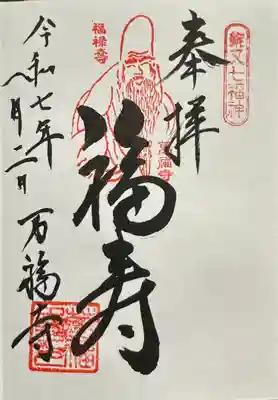 奉拝
七福神
福禄寿
萬福寺
福寿
令和七年
一月二日
万福寺